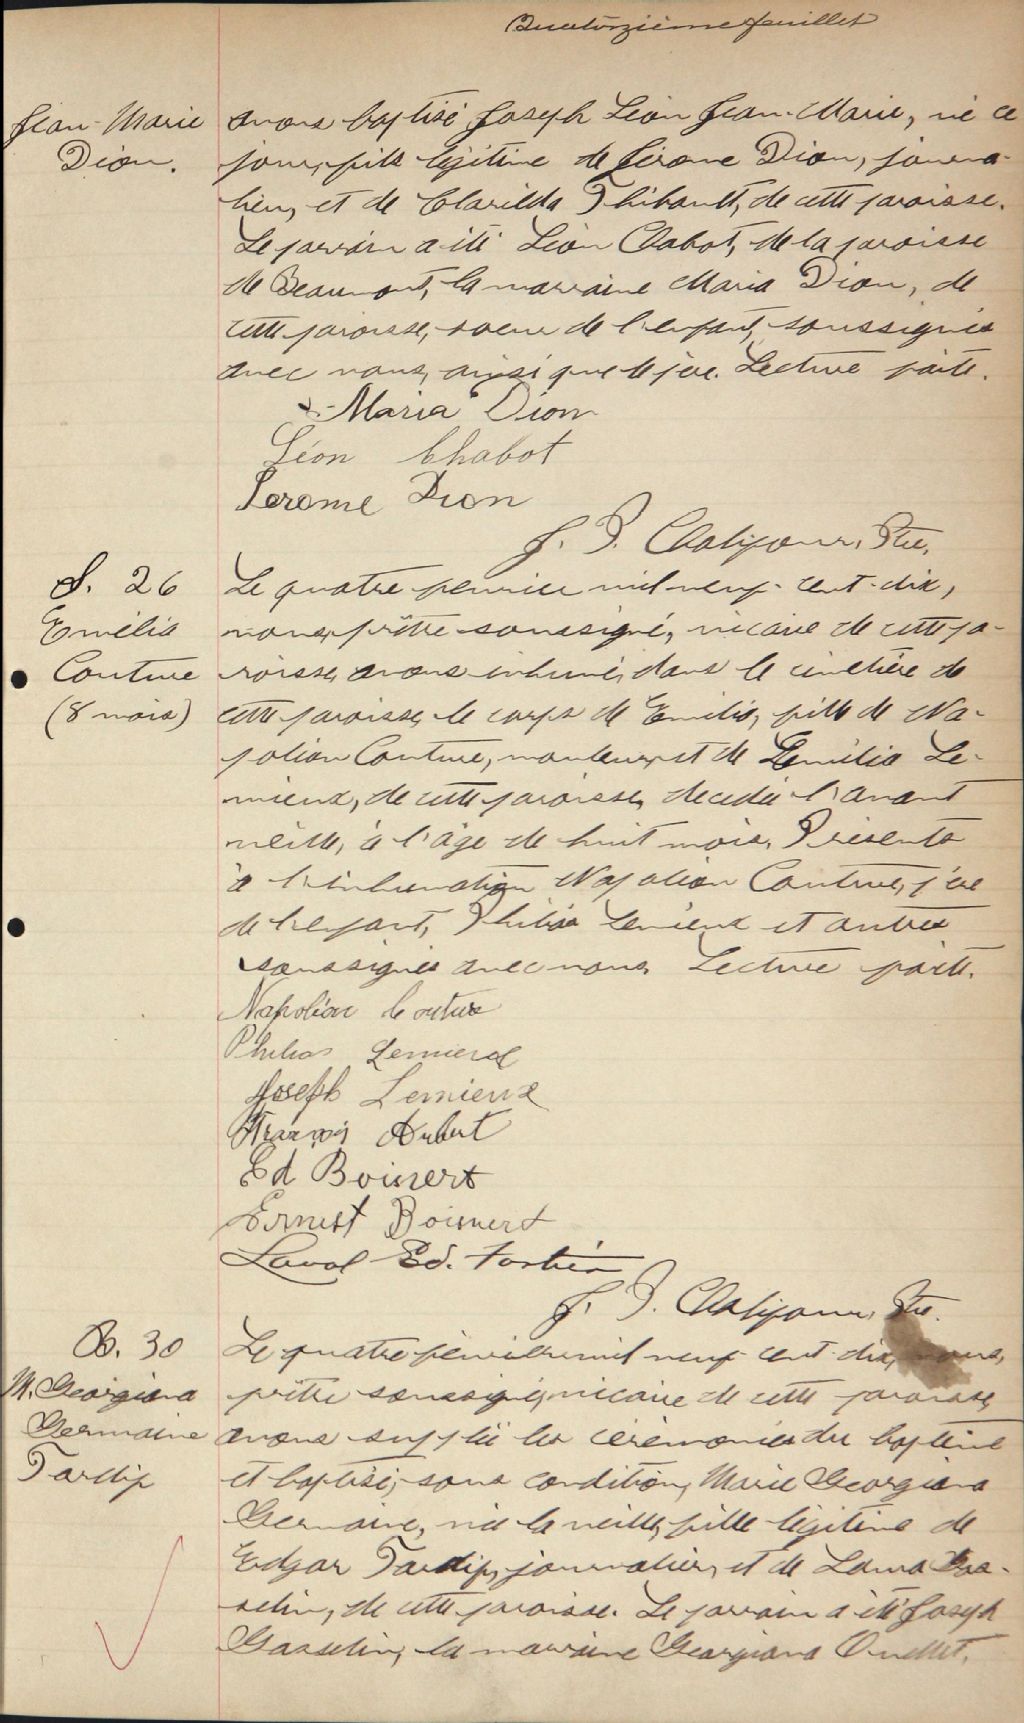 Quatorzième feuillet
Jean-Marie
Dion.
avons baptisé Joseph Léon Jean-Marie, né ce
jour, fils légitime de Jérôme Dion, journa-
lier, et de Clarilda Thibault, de cette paroisse.
Le parrain a été Léon Chabot, de la paroisse
de Beaumont, la marraine Maria Dion, de
cette paroisse, soeur de l'enfant, soussignés
avec nous, ainsi que le père. Lecture faite.
Maria Dion
Léon Chabot
Jerome Dion
J. Ptre.
S. 26
Emélia
Couture
(8 mois)
Le quatre février mil neuf-cent-dix,
nous, prêtre soussigné, vicaire de cette pa-
roisse, avons inhumé, dans le cimetière de
cette paroisse, le corps de Emélia, fille de Na-
poléon Couture, mouleur, et de Emélia Le-
mieux, de cette paroisse, décédée l'avant
veille, à l'âge de huit mois. Présents
à l'inhumation Napoléon Couture, père
de l'enfant, Philias Lemieux et autres
soussignés avec nous. Lecture faite.
Napoléon Couture
Philias Lemieux
Joseph Lemieux
François Aubert
Ed Boisvert
Ernest Boisvert
Laval Ed. Fortier
J. Ptre.
B. 30
M. Georgiana
Germaine
Tardif
Le quatre février mil neuf-cent-dix, nous,
prêtre soussigné, vicaire de cette paroisse,
avons suppléé les cérémonies du baptême
et baptisé, sous condition, Marie Georgiana
Germaine, née la veille, fille légitime de
Edgar Tardif, journalier, et de Laura Gos-
selin, de cette paroisse. Le parrain a été Joseph
Gosselin, la marraine Georgiana Ouellet,